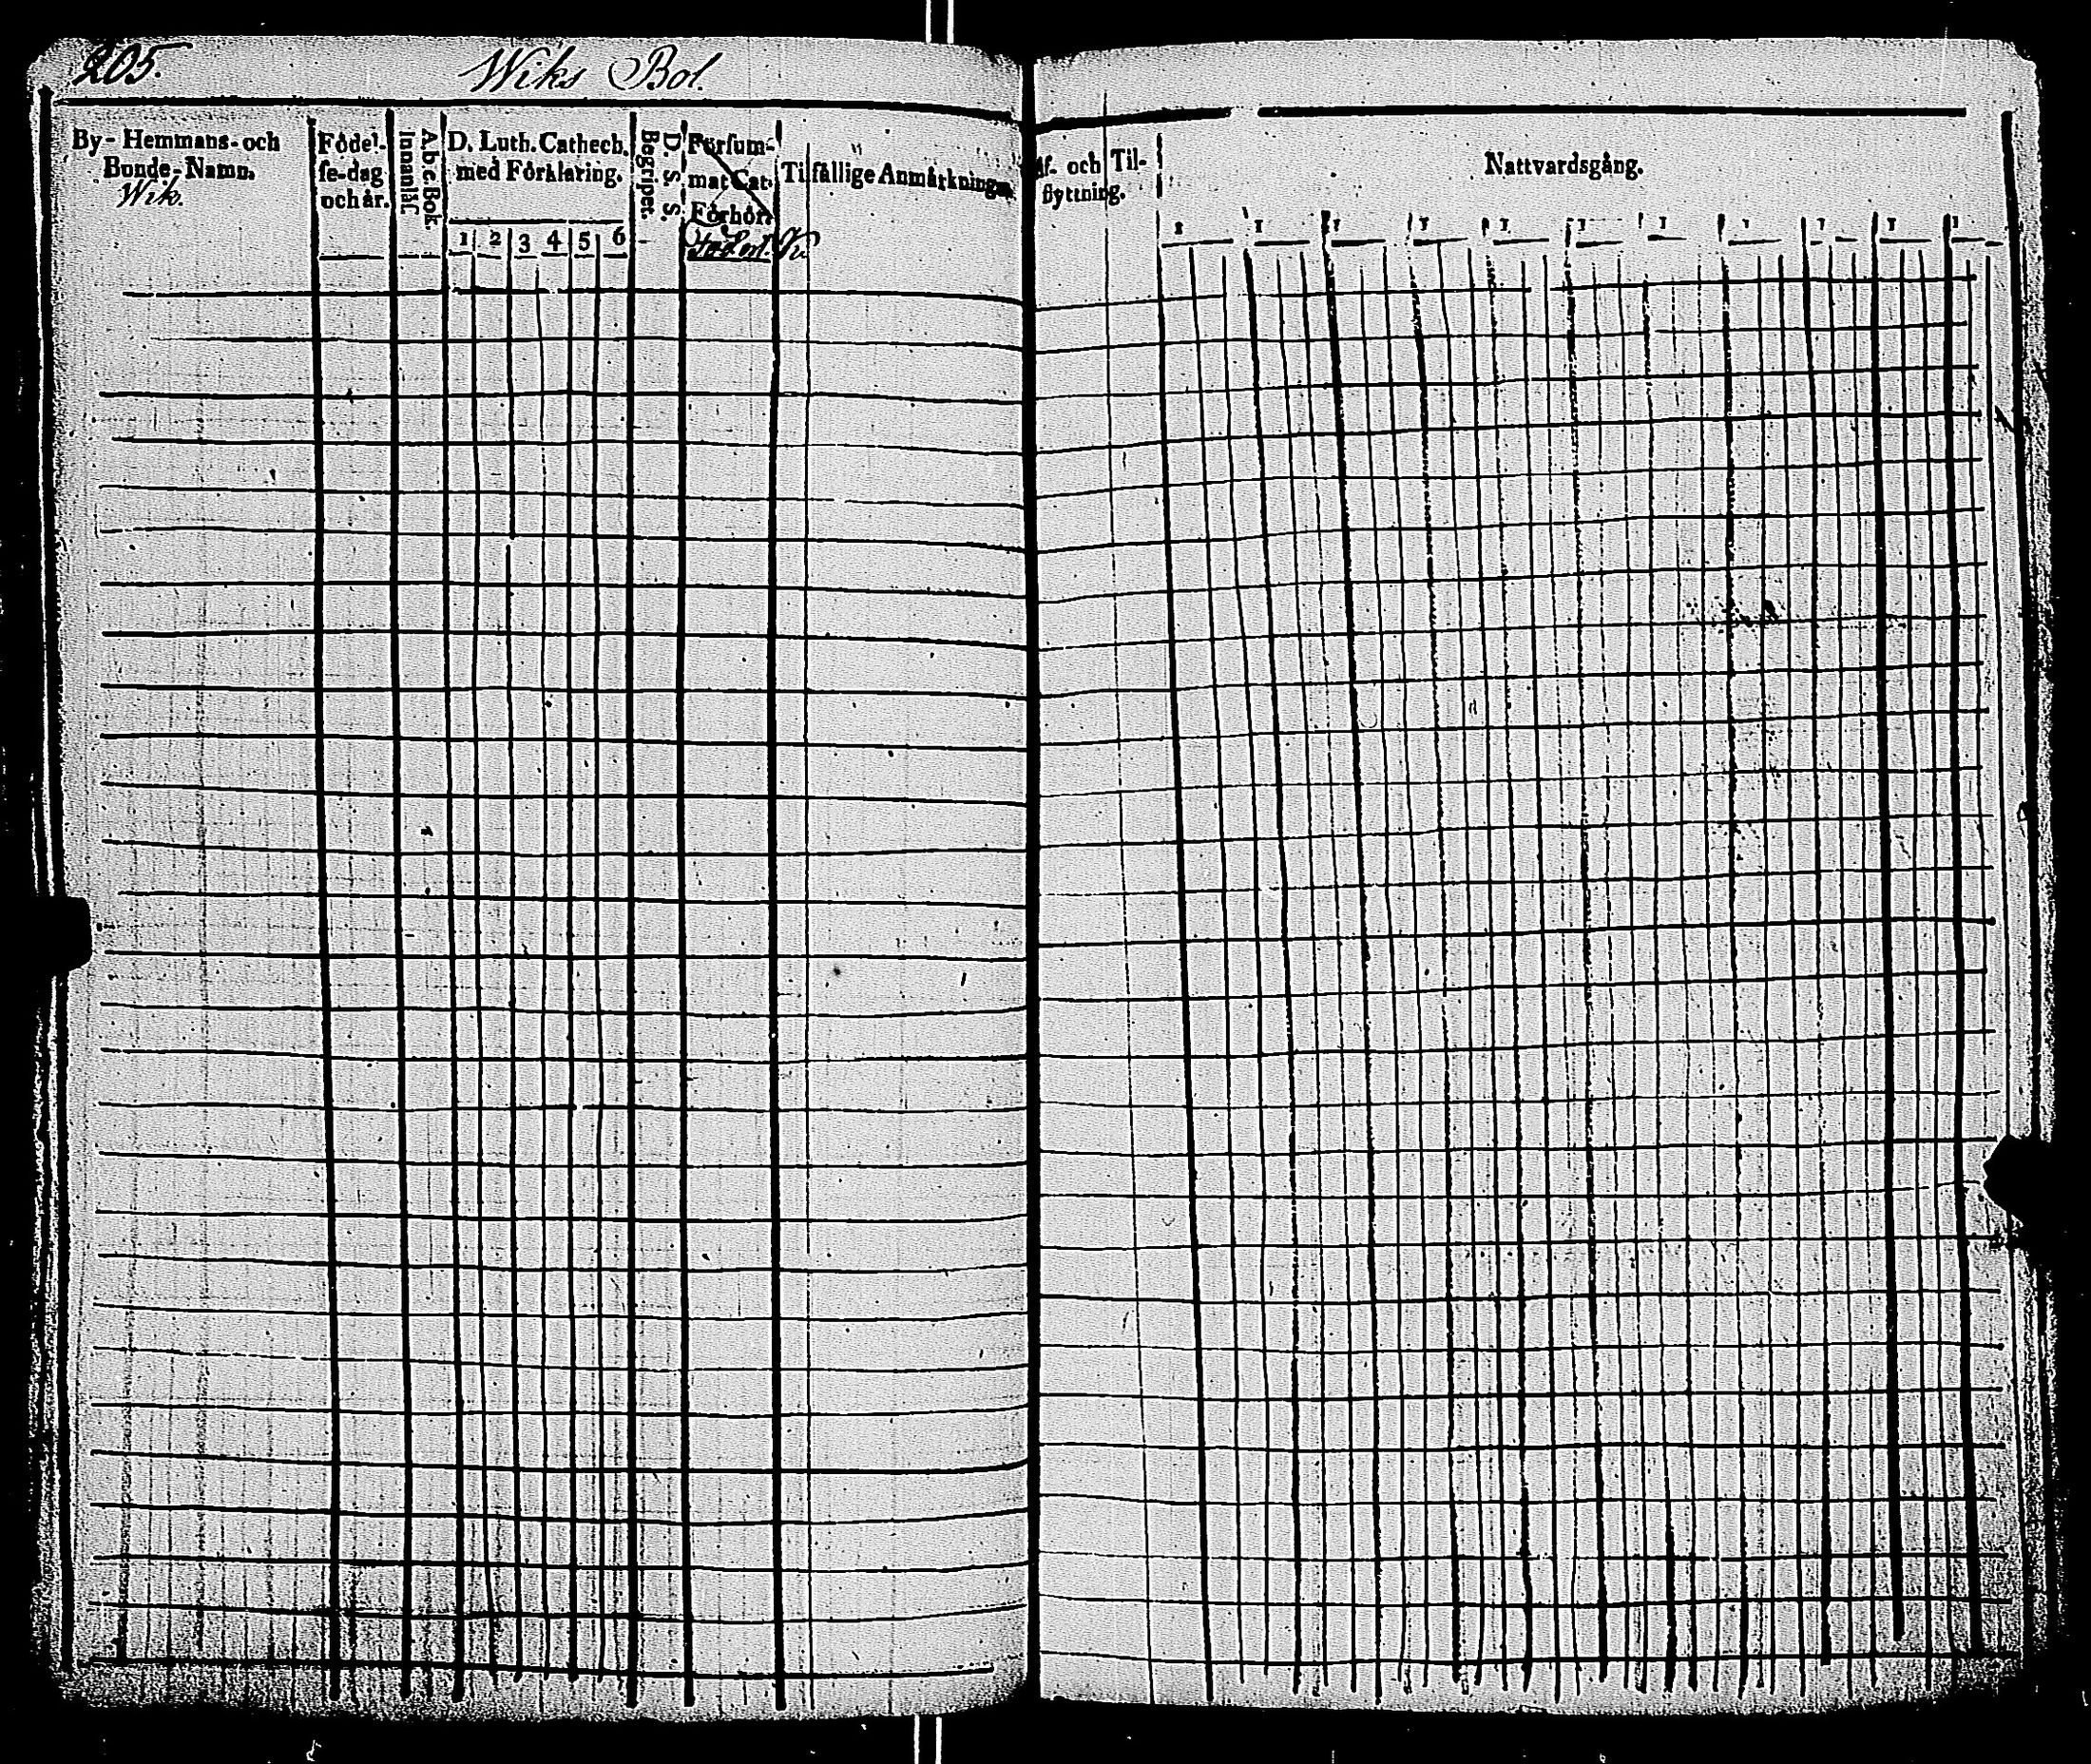 205.
Wiks Bol.
By- Hemmans- och
Bonde-Namn.
Wik.
Födel-
se-dag
och år.
A.b.c. Bok.
Innanlär.
D. Luth. Cathech.
med Förklaring.
1 2 3 4 5 6
D. S. S.
Begripet.
Försum-
mat Cat.
Förhör.
Tilfällige Anmärkningar
Af- och Til-
flyttning.
Nattvardsgång.
1 1 1 1 1 1 1 1 1 1 1